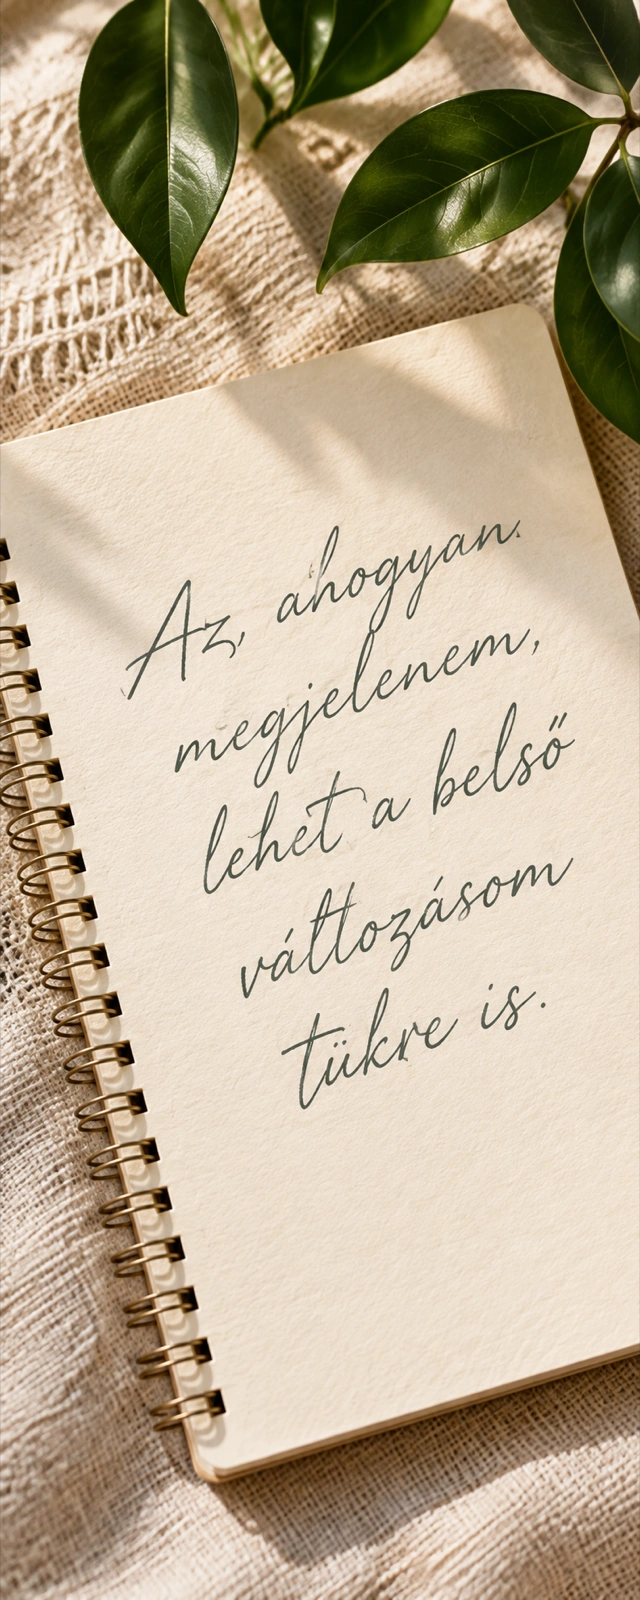 Az, ahogyan
megjelenem,
lehet a belső
változásom
tükre is.